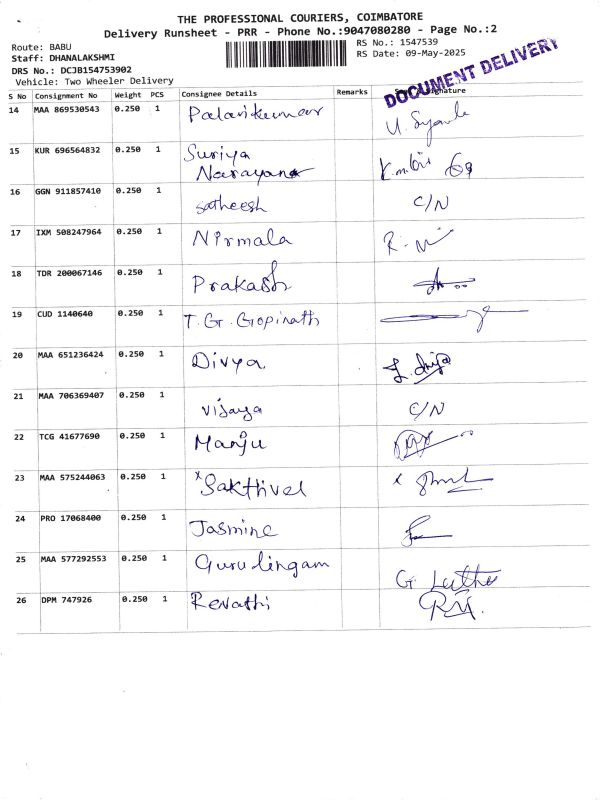 THE PROFESSIONAL COURIERS, COIMBATORE
Delivery Runsheet - PRR - Phone No.:9047080280 - Page No.:2
Route: BABU
RS No.: 1547539
Staff: DHANALAKSHMI
RS Date: 09-May-2025
DRS No.: DCJB154753902
Vehicle: Two Wheeler Delivery
DOCUMENT DELIVERY
S No Consignment No Weight PCS Consignee Details Remarks Signature
14 MAA 869530543 0.250 1
15 KUR 696564832 0.250 1 Suriya
Narayana
16 GGN 911857410 0.250 1 satheesh C/N
17 IXM 508247964 0.250 1 Nirmala
18 TDR 200067146 0.250 1 Prakash
19 CUD 1140640 0.250 1 T. G. Gopinath
20 MAA 651236424 0.250 1 Divya
21 MAA 706369407 0.250 1 vijaya C/N
22 TCG 41677690 0.250 1 Manju
23 MAA 575244063 0.250 1 x Sakthivel x
24 PRO 17068400 0.250 1 Jasmine
25 MAA 577292553 0.250 1 Gurulingam
26 DPM 747926 0.250 1 Revathi